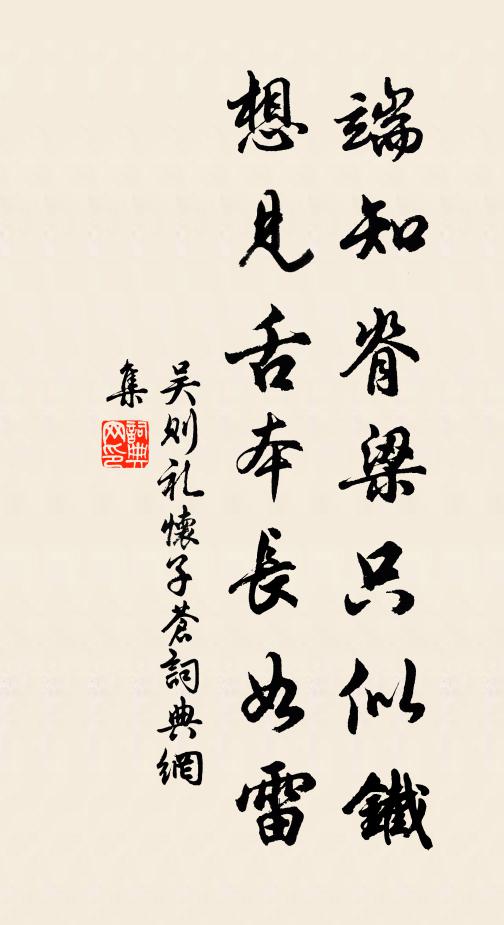 端知脊梁只似鐵
想見舌本長如雷
吳則礼懷子蒼詞典網
集
詞典
网印